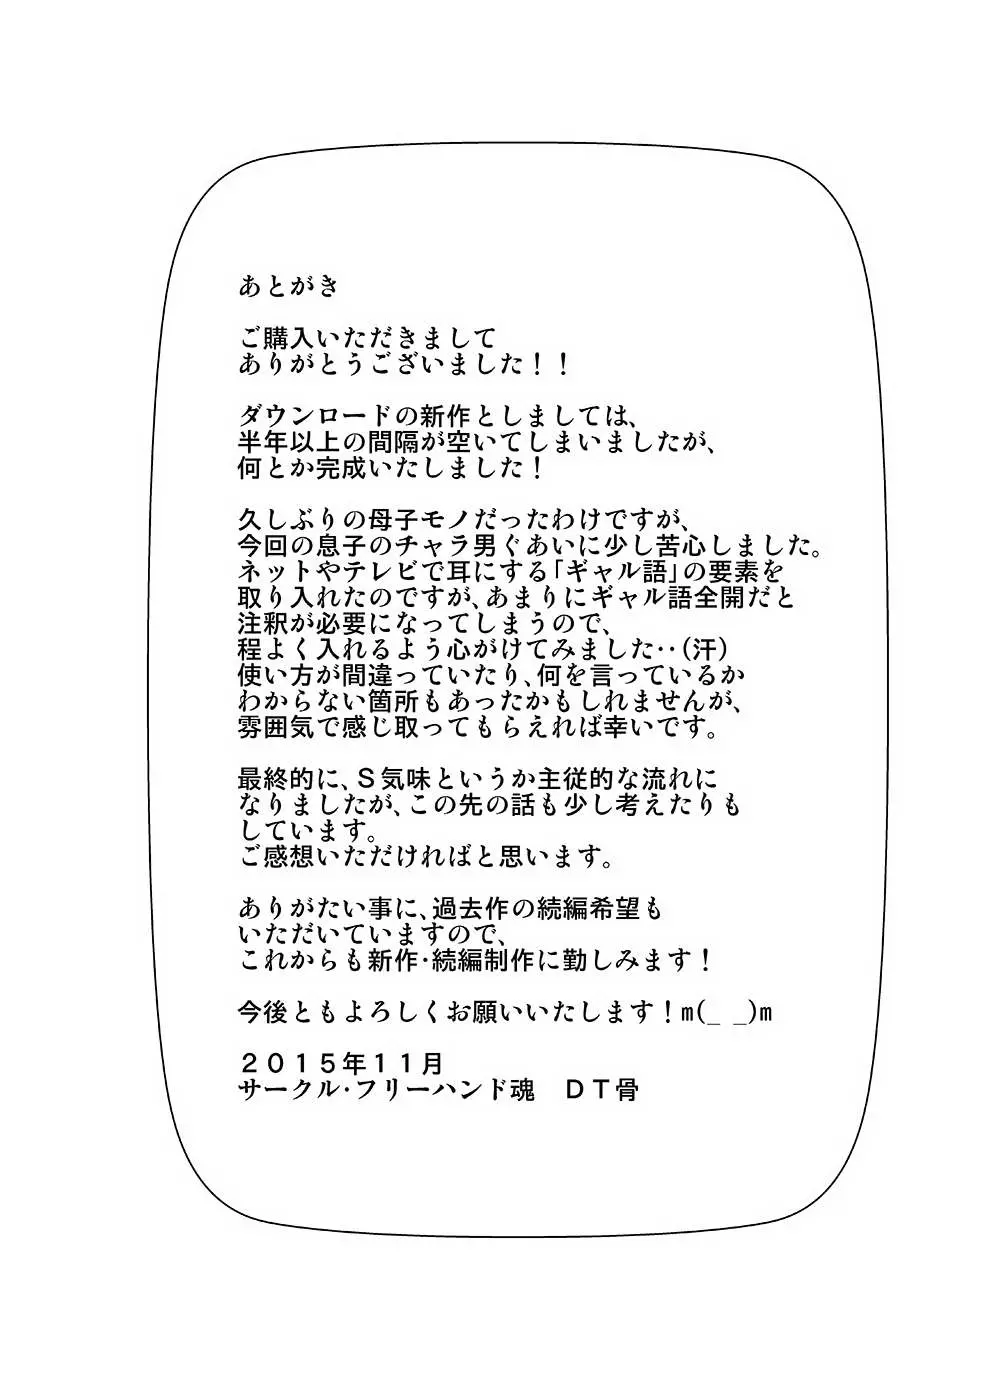 あとがき
ご購入いただきまして
ありがとうございました！！
ダウンロードの新作としましては、
半年以上の間隔が空いてしまいましたが、
何とか完成いたしました！
久しぶりの母子モノだったわけですが、
今回の息子のチャラ男ぐあいに少し苦心しました。
ネットやテレビで耳にする「ギャル語」の要素を
取り入れたのですが、あまりにギャル語全開だと
注釈が必要になってしまうので、
程よく入れるよう心がけてみました‥（汗）
使い方が間違っていたり、何を言っているか
わからない箇所もあったかもしれませんが、
雰囲気で感じ取ってもらえれば幸いです。
最終的に、Ｓ気味というか主従的な流れに
なりましたが、この先の話も少し考えたりも
しています。
ご感想いただければと思います。
ありがたい事に、過去作の続編希望も
いただいていますので、
これからも新作・続編制作に勤しみます！
今後ともよろしくお願いいたします！m(_ _)m
２０１５年１１月
サークル・フリーハンド魂　ＤＴ骨